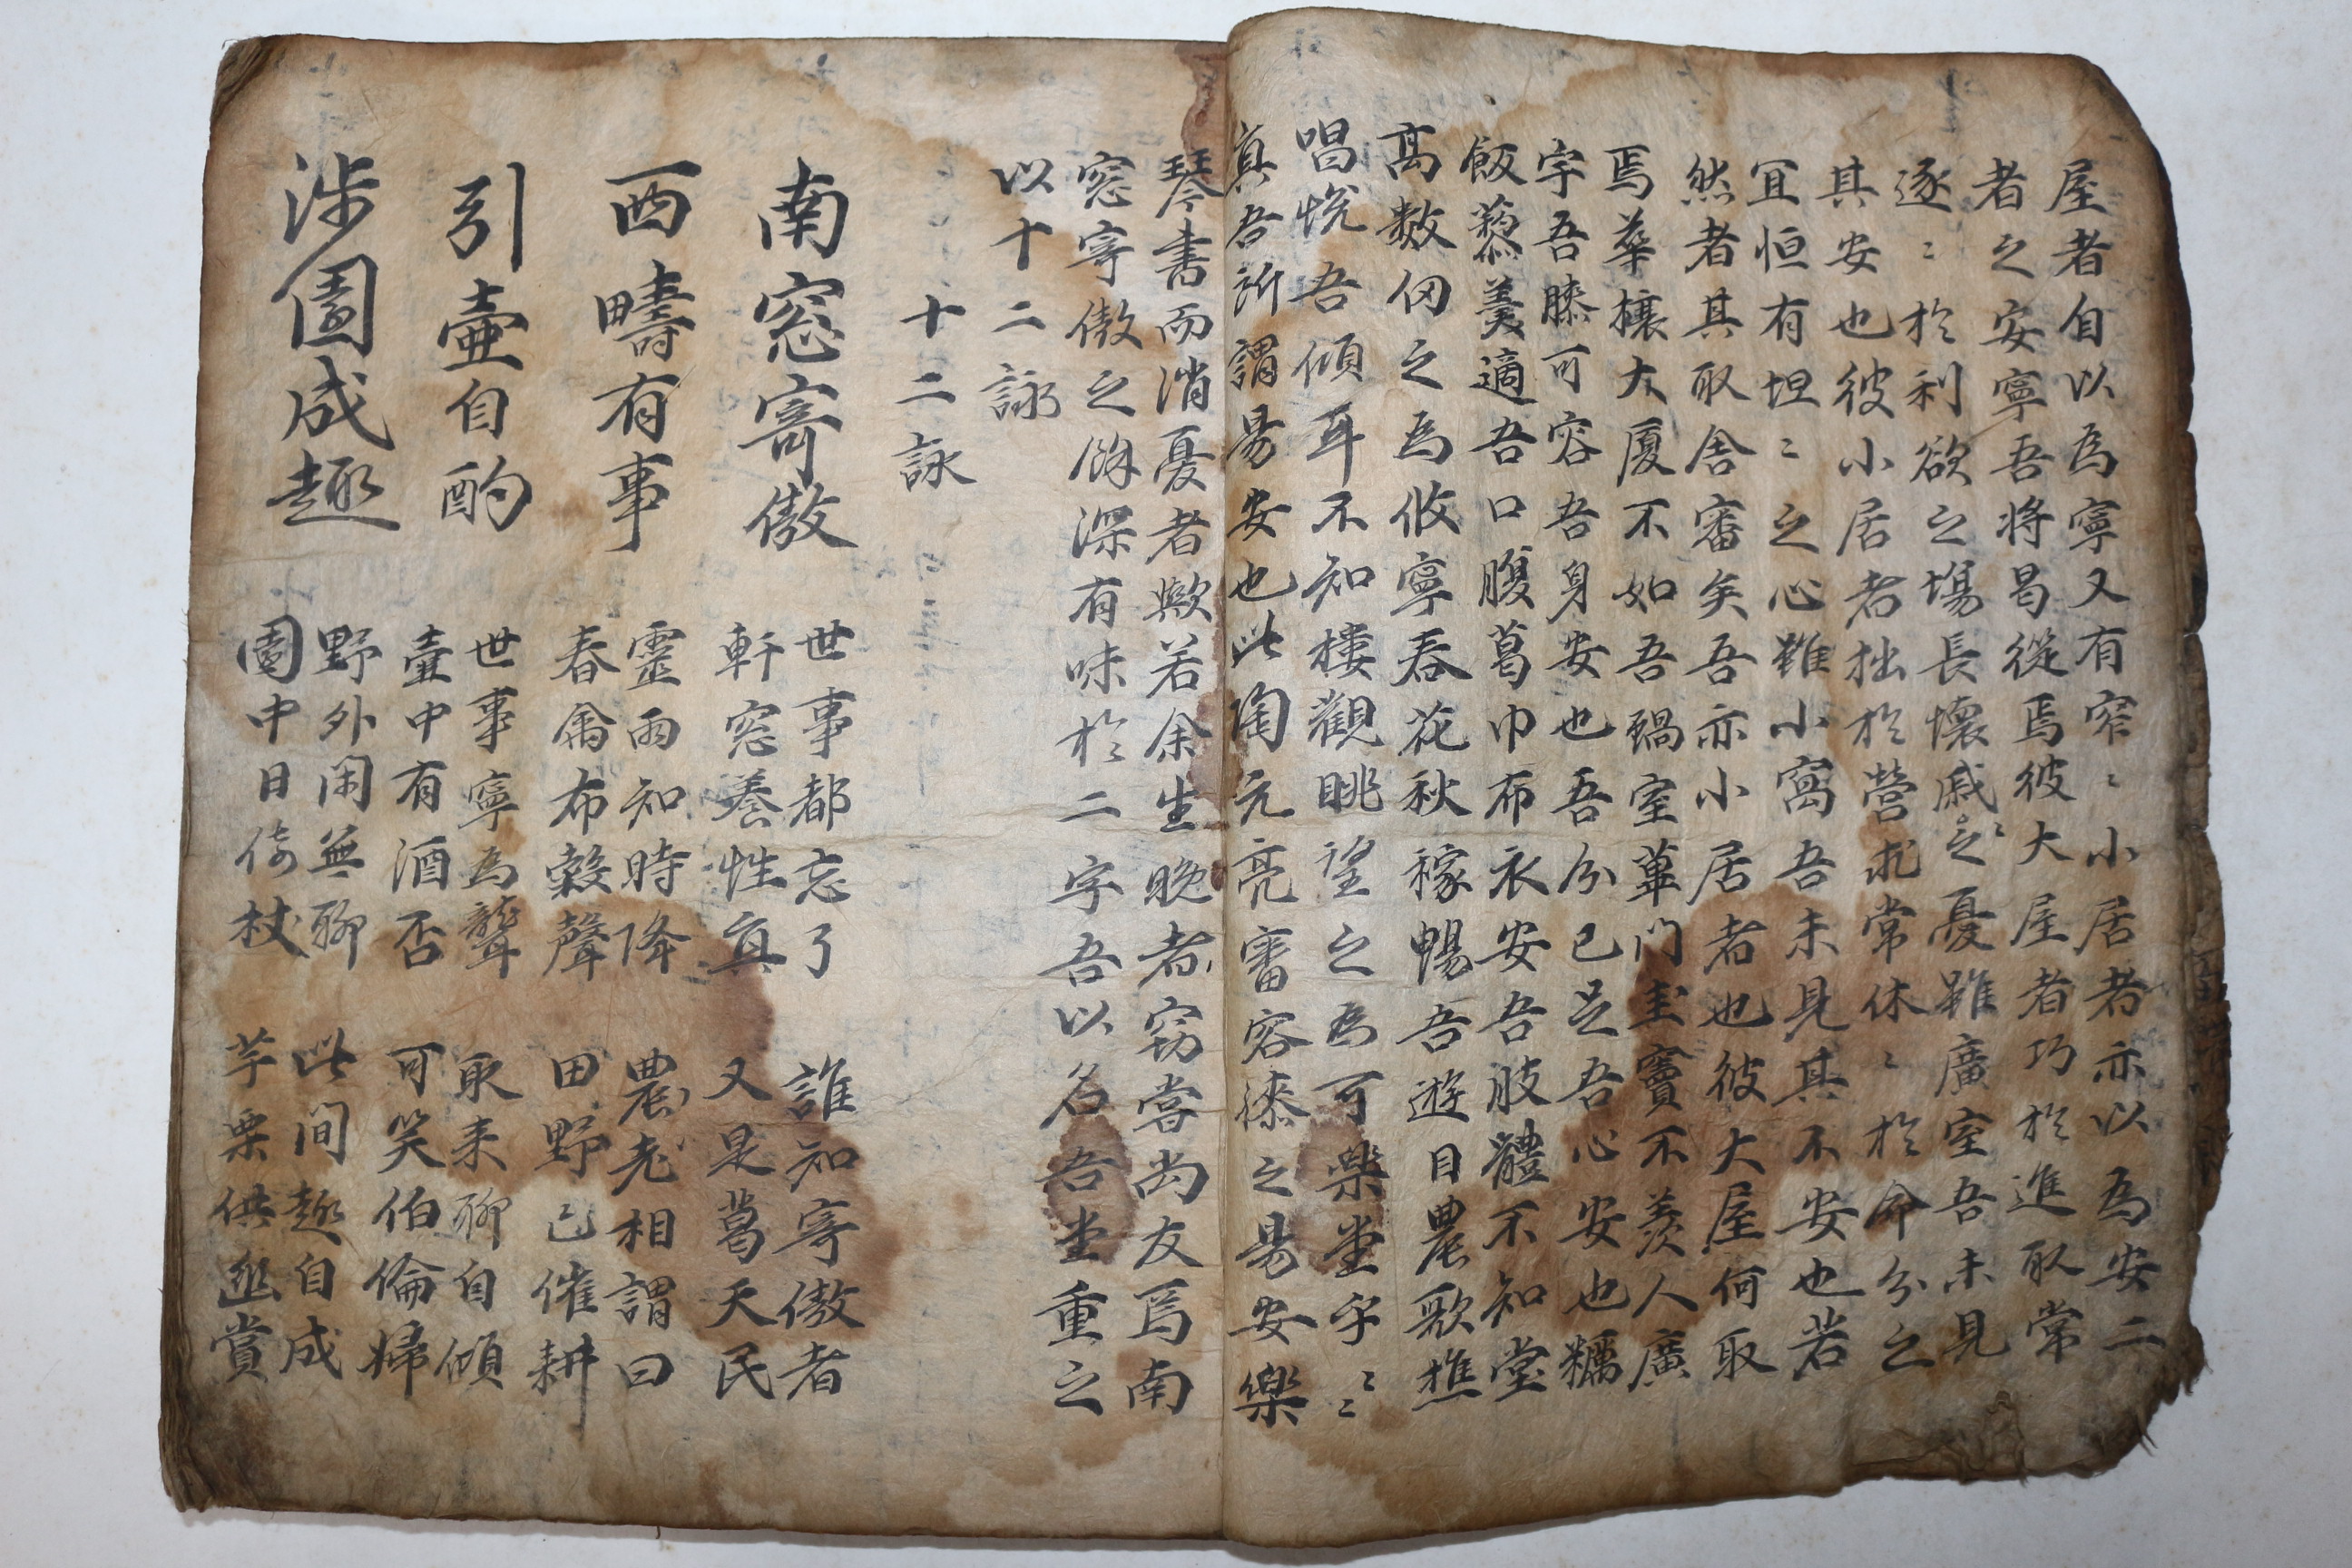 屋者自以為寧又有窄〻小居者亦以為安二
者之安寧吾將曷從焉彼大屋者巧於進取常
逐〻於利欲之場長懷戚〻之憂雖廣室吾未見
其安也彼小居者拙於營求常休〻於命分之
宜恒有坦〻之心雖小窩吾未見其不安也若
然者其取舍審矣吾亦小居者也彼大屋何取
焉華榱大廈不如吾蝸室蓽門圭竇不羨人廣
宇吾膝可容吾身安也吾分已足吾心安也糲
飯藜羹適吾口腹葛巾布衣安吾肢體不知堂
高數仞之為攸寧春花秋稼暢吾遊目農歌樵
唱悅吾傾耳不知樓觀眺望之為可樂堂乎〻〻
真吾所謂易安也此陶元亮審容膝之易安樂
琴書而消憂者歟若余生晚者窃嘗尚友焉南
窓寄傲之餘深有味於二字吾以名吾堂重之
以十二詠
十二詠
南窓寄傲
世事都忘了 誰知寄傲者
軒窓養性真 又是葛天民
西疇有事
靈雨知時降 農老相謂曰
春龠布穀聲 田野已催耕
引壷自酌
世事寧為聾 取来聊自傾
壷中有酒否 可笑伯倫婦
涉園成趣
野外閑無聊 此間趣自成
園中日倚杖 芋栗供逝賞